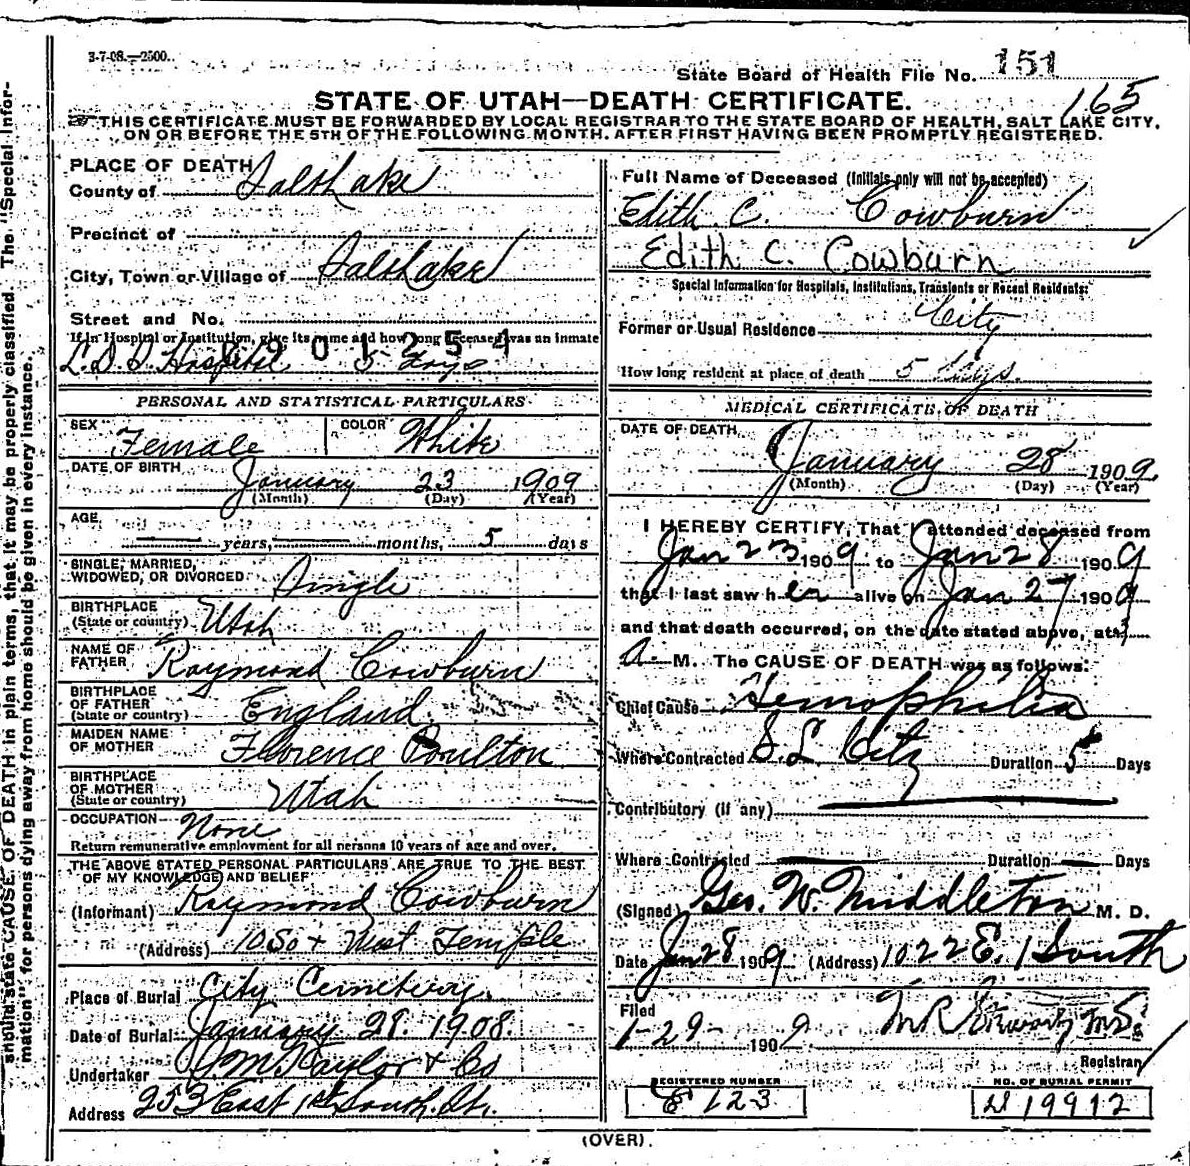 3-7-08.—2500.
State Board of Health File No. 151
165
STATE OF UTAH—DEATH CERTIFICATE.
THIS CERTIFICATE MUST BE FORWARDED BY LOCAL REGISTRAR TO THE STATE BOARD OF HEALTH, SALT LAKE CITY,
ON OR BEFORE THE 5TH OF THE FOLLOWING MONTH, AFTER FIRST HAVING BEEN PROMPTLY REGISTERED.
should state CAUSE OF DEATH in plain terms, that it may be properly classified. The "Special Infor-
mation" for persons dying away from home should be given in every instance.
PLACE OF DEATH
County of Salt Lake
Precinct of
City, Town or Village of Salt Lake
Street and No.
If in Hospital or Institution, give its name and how long deceased was an inmate
L.D.S. Hospital 5 Days
0901254
PERSONAL AND STATISTICAL PARTICULARS
SEX Female COLOR White
DATE OF BIRTH January 23 1909
(Month) (Day) (Year)
AGE
years, months, 5 days
SINGLE, MARRIED,
WIDOWED, OR DIVORCED Single
BIRTHPLACE
(State or country) Utah
NAME OF
FATHER Raymond Cowburn
BIRTHPLACE
OF FATHER
(State or country) England
MAIDEN NAME
OF MOTHER Florence Poulton
BIRTHPLACE
OF MOTHER
(State or country) Utah
OCCUPATION None
Return remunerative employment for all persons 10 years of age and over.
THE ABOVE STATED PERSONAL PARTICULARS ARE TRUE TO THE BEST
OF MY KNOWLEDGE AND BELIEF
(Informant) Raymond Cowburn
(Address) 10 So + West Temple
Place of Burial City Cemetery.
Date of Burial January 28. 1908.
Undertaker Taylor & Co
Address 253 East 1st South St.
Full Name of Deceased (Initials only will not be accepted)
Edith C. Cowburn
Edith C. Cowburn
Special Information for Hospitals, Institutions, Transients or Recent Residents:
Former or Usual Residence City
How long resident at place of death 5 Days.
MEDICAL CERTIFICATE OF DEATH
DATE OF DEATH
January 28 1909.
(Month) (Day) (Year)
I HEREBY CERTIFY, That I attended deceased from
Jan 23 1909 to Jan 28 1909
that I last saw her alive on Jan 27 1909
and that death occurred, on the date stated above, at
A. M. The CAUSE OF DEATH was as follows:
Chief Cause Hemophilia
Where Contracted S.L. City Duration 5 Days
Contributory (if any)
Where Contracted Duration Days
(Signed) Geo. W. Middleton M. D.
Date Jan 28 1909. (Address) 1022 E. 1 South
Filed
1-29- 1909.
Registrar
REGISTERED NUMBER
E 123
NO. OF BURIAL PERMIT
D 19912
(OVER).